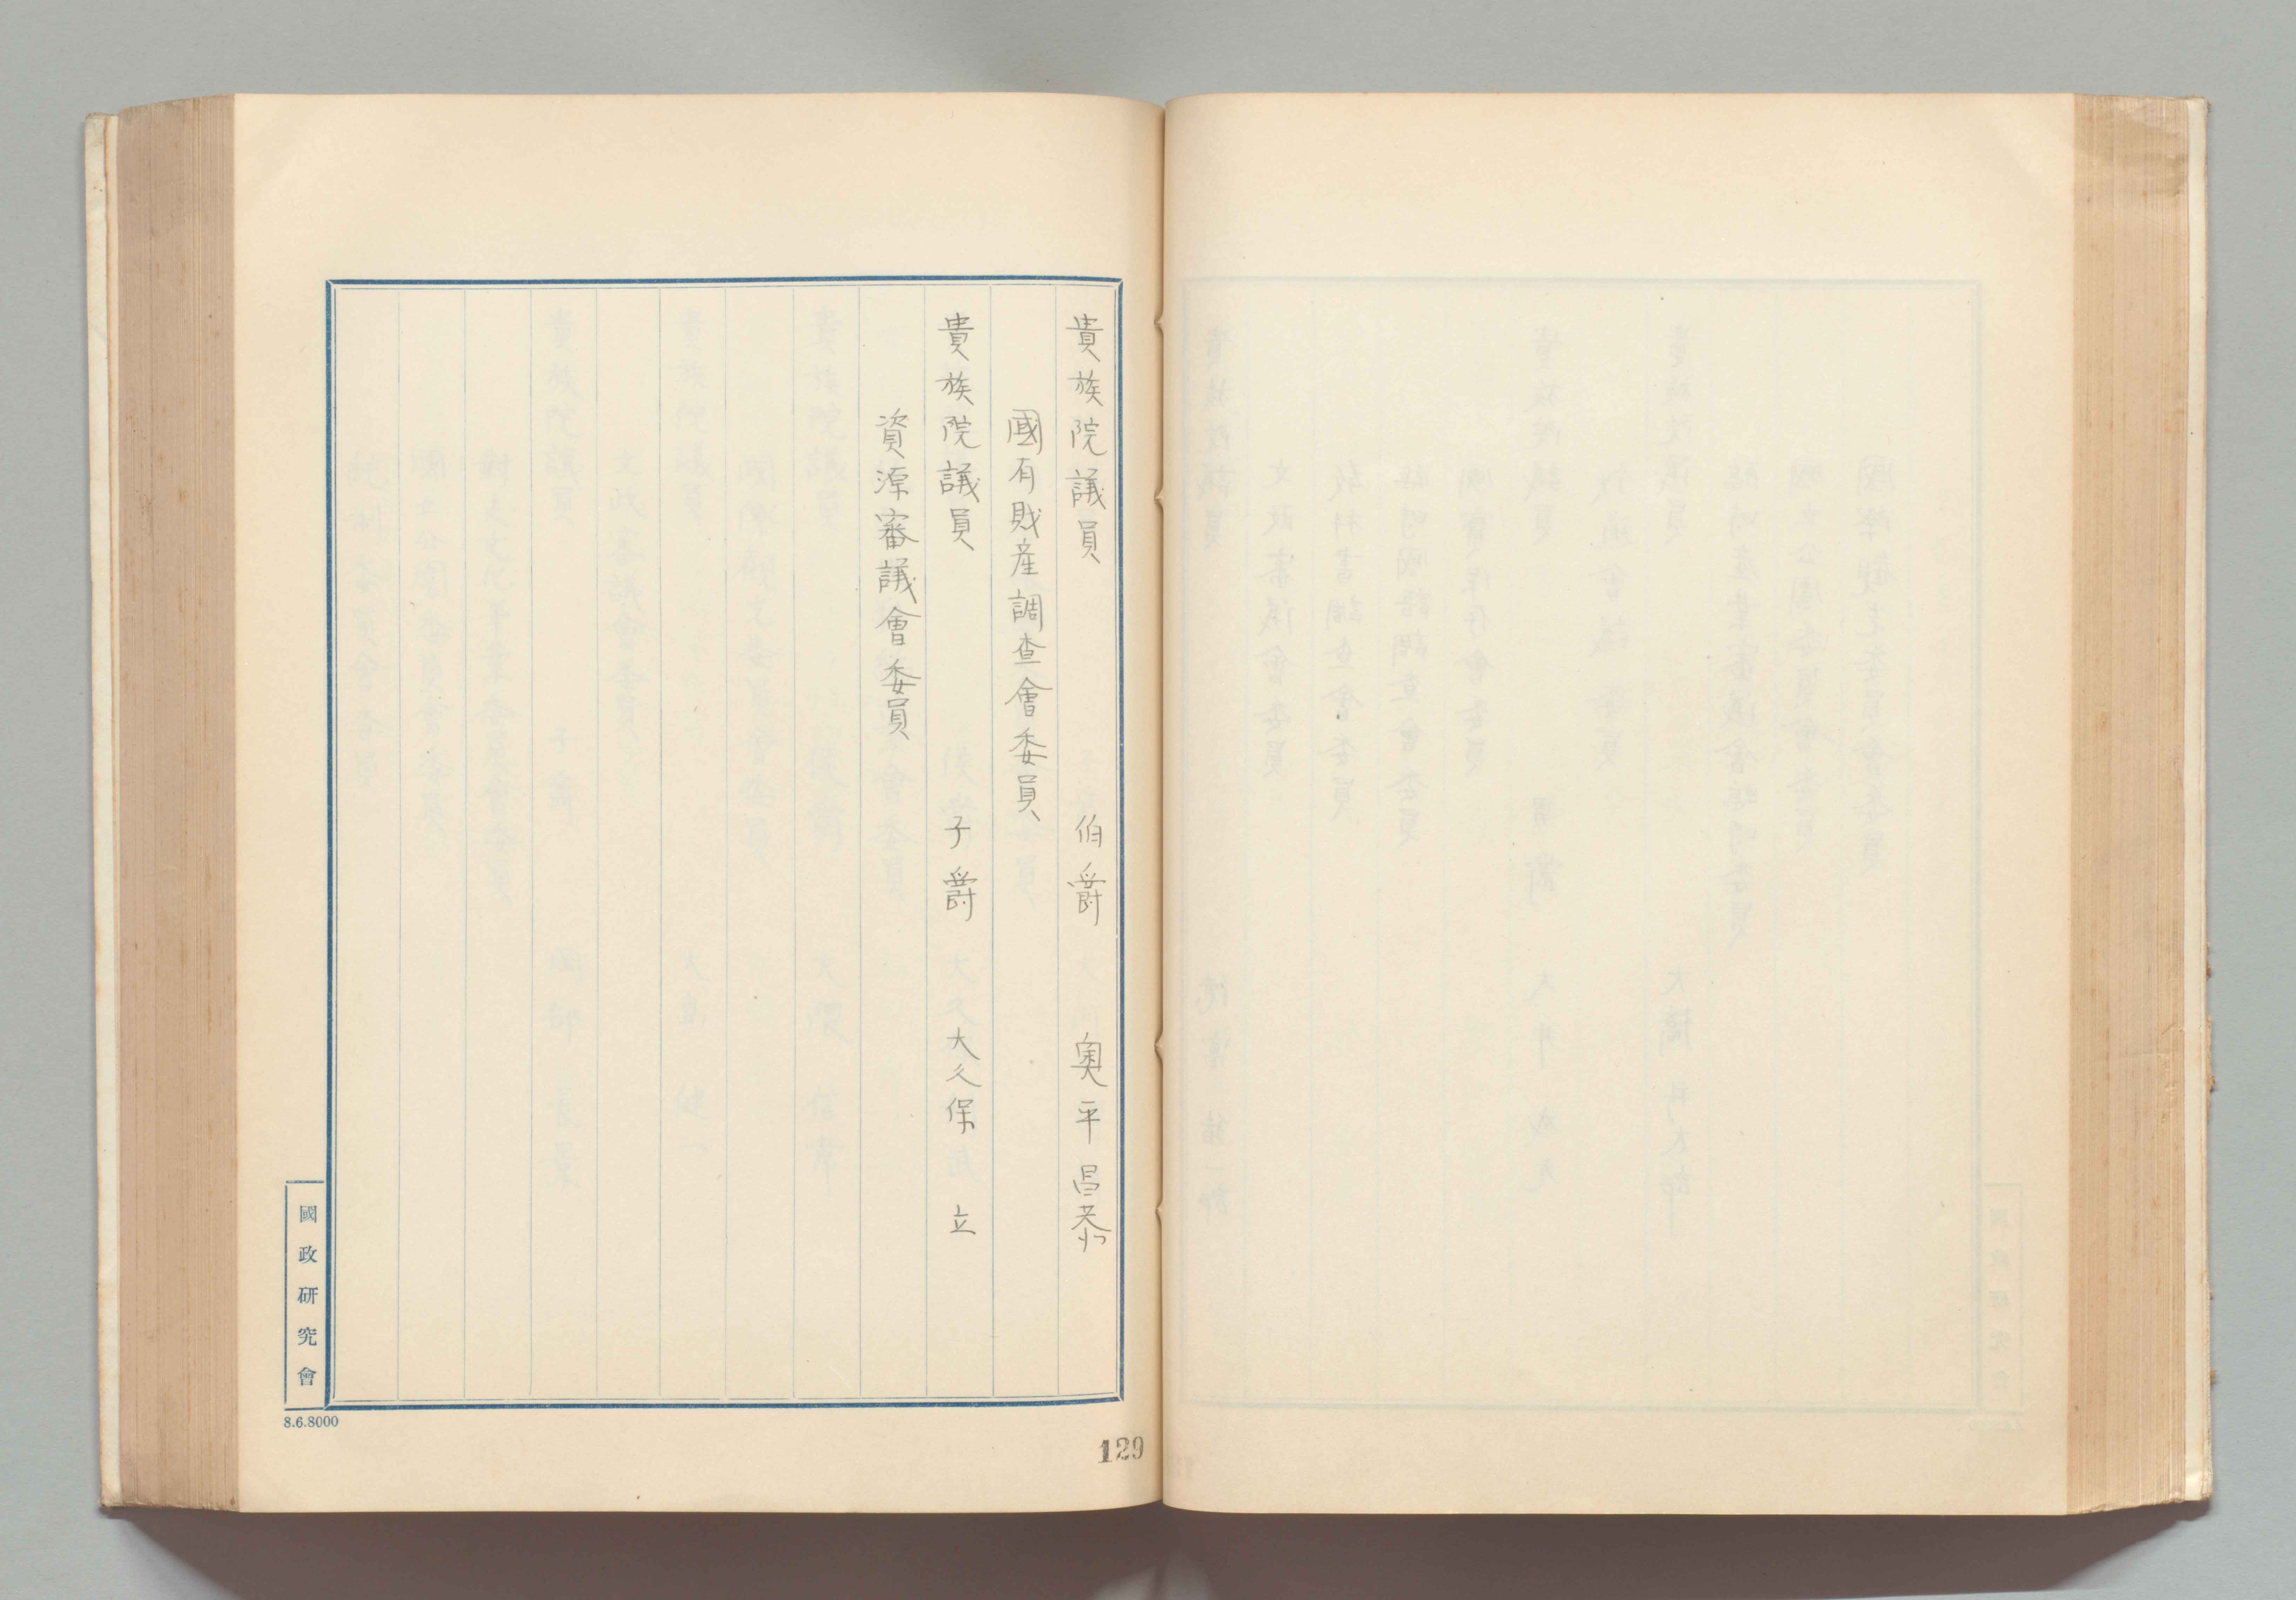 貴族院議員 伯爵 奥平昌恭
國有財産調査會委員
貴族院議員 子爵 大久保立
資源審議會委員
國政研究會
8.6.8000
129